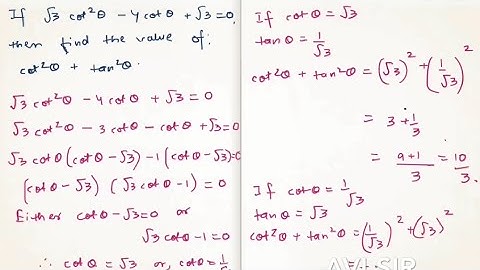 If √3 cot²θ - 4cotθ + √3 = 0,
then find the value of:
cot²θ + tan²θ.
√3 cot²θ - 4cotθ + √3 = 0
√3 cot²θ - 3cotθ - cotθ + √3 = 0
√3 cotθ (cotθ - √3) - 1 (cotθ - √3) = 0
(cotθ - √3) (√3 cotθ - 1) = 0
Either cotθ - √3 = 0 or
√3 cotθ - 1 = 0
∴ cotθ = √3 or, cotθ = 1/√3
If cotθ = √3
tanθ = 1/√3
cot²θ + tan²θ = (√3)² + (1/√3)²
= 3 + 1/3
= 9+1/3 = 10/3.
If cotθ = 1/√3
tanθ = √3
cot²θ + tan²θ = (1/√3)² + (√3)²
AVI SIR